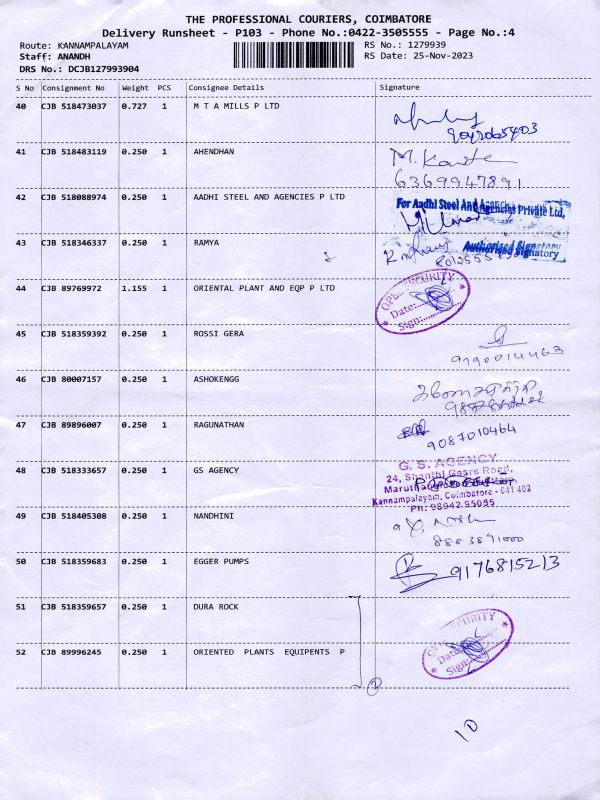 THE PROFESSIONAL COURIERS, COIMBATORE
Delivery Runsheet - P103 - Phone No.:0422-3505555 - Page No.:4
Route: KANNAMPALAYAM
RS No.: 1279939
Staff: ANANDH
RS Date: 25-Nov-2023
DRS No.: DCJB127993904
S No Consignment No Weight PCS Consignee Details Signature
40 CJB 518473037 0.727 1 M T A MILLS P LTD
41 CJB 518483119 0.250 1 AHENDHAN M.
6369947891
42 CJB 518088974 0.250 1 AADHI STEEL AND AGENCIES P LTD For Aadhi Steel And Agencies Private Ltd,
43 CJB 518346337 0.250 1 RAMYA Authorised Signatory
44 CJB 89769972 1.155 1 ORIENTAL PLANT AND EQP P LTD SECURITY
Date:
Sign:
45 CJB 518359392 0.250 1 ROSSI GERA
9790014463
46 CJB 80007157 0.250 1 ASHOKENGG
47 CJB 89896007 0.250 1 RAGUNATHAN
9087010464
48 CJB 518333657 0.250 1 GS AGENCY G. S. AGENCY
24, Shanthi Gears Road,
Kannampalayam, Coimbatore - 641 402
Ph: 98942 95095
49 CJB 518405308 0.250 1 NANDHINI
8883891000
50 CJB 518359683 0.250 1 EGGER PUMPS 9176815213
51 CJB 518359657 0.250 1 DURA ROCK
52 CJB 89996245 0.250 1 ORIENTED PLANTS EQUIPENTS P
2
10